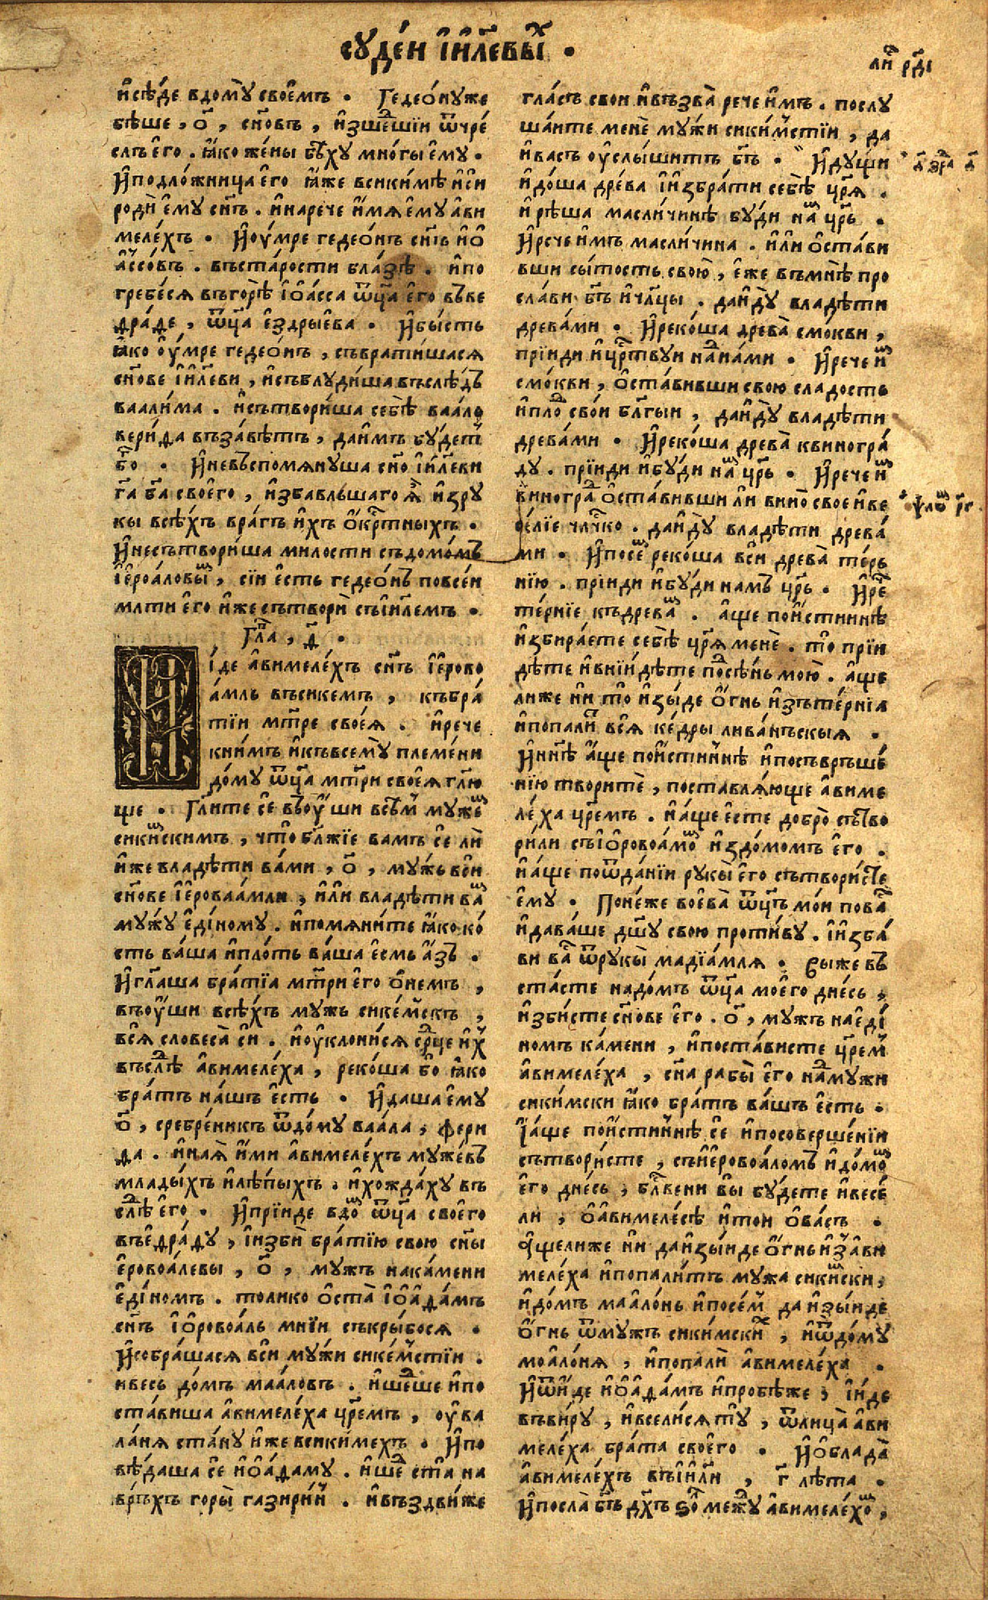 суде́й і҆и҃левы́хъ ·
ли́ст рд҃і
и҆сѣ́де вдо́му свое́мъ · Гедео́нуже
бѣ́ше , о҃ , сн҃овъ , и҆зше́дшїи ѿчре́
слъ е҆го̀ . ꙗ҆́ко же́ны бѣ́ху мно́гы е҆му̀ ·
И҆подло́жница е҆го̀ ꙗ҆́же всики́мѣ и҆си
роди̏ е҆му̀ сн҃ъ . и҆нарече̏ и҆́мѧ е҆му̀ а҆ви
меле́хъ · И҆оу҆́мре гедео́нъ сн҃ъ и҆о҆
а҆́ссовъ . въста́рости бла́зѣ . и҆по
гребе́сѧ въго́рѣ і҆о҆а́сса ѿц҃а̀ е҆го̀ въве
дра́де , ѿц҃а̀ е҆здры́ева · И҆бы́сть
ꙗ҆́ко оу҆́мре гедео́нъ , съврати́шасѧ
сн҃ове і҆и҃леви , и҆съблуди́ша въслѣ́дъ
ваали́ма . и҆сътвори́ша себѣ̀ ваа́ло
вери́да въза́вѣтъ , да и҆́мъ бу́детъ
бо҃ · И҆невъспомѧну́ша сн҃о і҆и҃леви
га҃ ба҃ своего̀ , и҆збавльшаго ѧ҆̀ и҆зру
кы всѣ́хъ вра́гъ и҆́хъ о҆кр҃тныхъ ·
И҆несътвори́ша ми́лости съдомо́мъ
і҆ероа́ловымъ , сїи е҆́сть гедео́нъ повсе́и
млти е҆го̀ и҆́же сътвори̏ съі҆и҃лемъ ·
Гла҃ , д҃ ·
И҆́де а҆вимеле́хъ сн҃ъ і҆е́рово
а́мль въсике́мъ , къбра́
тїи мт҃ре своеѧ̀ . и҆рече̏
кни́мъ и҆къвсему̀ племе́ни
до́му ѿц҃а̀ мт҃ри своеѧ̀ гл҃ю
ще · Гл҃ите се̏ въоу҆́ши всѣ́мъ муже́мъ
сики́мскимъ , что̀ бл҃жїе ва́мъ се̏ ли̏
и҆́же владѣ́ти ва́ми , о҃ , му́жь вси̏
сн҃ове і҆ероваа́мли , и҆лѝ владѣ́ти ва́мъ
му́жу е҆ди́ному . и҆помѧни́те ꙗ҆́ко ко́
сть ва́ша и҆пло́ть ва́ша е҆́смь а҆́зъ ·
И҆гл҃аша бра́тїа мт҃ри е҆го̀ о҆не́мъ ,
въоу҆́ши всѣ́хъ му́жь сике́мскъ ,
всѧ̏ словеса̀ си̏ . и҆оуклони́сѧ ср҃це и҆́хъ
въслѣ́дъ а҆вимеле́ха , реко́ша бо ꙗ҆́ко
бра́тъ на́шъ е҆́сть · И҆да́ша е҆му̀
о҃ , сребре́никъ ѿдо́му ваа́ла , фери
да . и҆наѧ̀ и҆́ми а҆вимеле́хъ муже́въ
младыхъ и҆лѣ́пыхъ . и҆хожда́ху въ
слѣ́дъ е҆го̀ · И҆прїи́де вдо́мъ ѿц҃а̀ своего̀
въе҆дра́ду , і҆изби̏ бра́тїю свою̀ сн҃ы
е҆ровоа́левы , о҃ , му́жъ нака́мени
е҆ди́номъ . то́лико о҆ста̀ і҆о҆а҆да́мъ
сн҃ъ і҆о҆ровоа́ль мнїи съкры́босѧ ·
И҆собра́шасѧ вси̏ му́жи сике́мстїи .
и҆ве́сь до́мъ маа́ловъ . и҆ше́дше и҆по
ста́виша а҆вимеле́ха цр҃емъ , оу҆ва
ла́нѧ ста́ну и҆́же всики́мехъ · И҆по
вѣ́даша се̏ и҆о҆а҆да́му . и҆ше́дъ ста̀ на
ве́рхъ горы̀ газири́и . и҆въздви́же
гла́съ свои̏ и҆възва̀ рече̏ и҆́мъ . послу
ша́ите мене̏ му́жи сики́мстїи , да
и҆ва́съ оу҆слы́шитъ бг҃ъ · И҆ду́щи
и҆до́ша древа̀ і҆избра́ти себѣ̀ цр҃ѧ .
и҆рѣ́ша масли́чинѣ бу́ди на́мъ цр҃ь .
И҆рече̏ и҆́мъ масли́чина . и҆лѝ о҆ста́ви
вши сы́тость свою̀ , е҆́же въмнѣ̀ про
сла́ви бг҃ъ и҆чл҃цы . даи҆ду̀ владѣ́ти
древа́ми · И҆реко́ша древа̀ смо́кви ,
прїиди и҆цр҃твуи на́дна́ми · И҆рече̏ и҆́мъ
смо́кви , о҆ста́вивши свою̀ сла́дость
и҆пло́дъ свои̏ бл҃гыи , даи҆ду̀ владѣ́ти
древа́ми · И҆реко́ша древа̀ квиногра́
ду . прїиди и҆бу́ди на́мъ цр҃ь · И҆рече̏ и҆́мъ
виногра́дъ о҆ста́вивши ли вино̀ свое̏ и҆ве
се́лїе чл҃чко . даи҆ду̀ владѣ́ти древа́
ми · И҆посе́мъ реко́ша вси̏ древа̀ те́рь
нїю . прїиди и҆бу́ди на́мъ цр҃ь · И҆рече̏
те́рнїе къдрева́мъ . а҆́ще пои́стиннѣ
и҆збира́ете себѣ̀ цр҃ѧ мене̏ . то̀ прїи
дѣ́те и҆вниидѣ́те по́дсѣ́нь мою̀ . а҆́ще
лиже ни̏ то̀ и҆зы́де о҆́гнь и҆зъте́рнїа
и҆попали́тъ всѧ̏ ке́дры лива́нъскыѧ ·
И҆ны́нѣ а҆́ще пои́стиннѣ и҆посъвръше́
нїю творитѐ , поставлѧ́юще а҆виме
ле́ха цр҃емъ . и҆а҆́ще е҆сте добро̀ сътво
ри́ли съі҆о҆ровоа́момъ и҆здо́момъ е҆го̀ .
и҆а҆́ще поѿда́нїи рукы̀ е҆го̀ сътвори́сте
е҆му̀ · Поне́же воева̀ ѿц҃ъ мо́и пова́съ
и҆дава́ше дш҃у свою̀ проти́ву . і҆изба́
ви ва́съ ѿрукы̀ мадїа́млѧ . Выже въ
ста́сте надо́мъ ѿц҃а̀ моего̀ дне́сь ,
и҆зби́сте сн҃ове е҆го̀ . о҃ , му́жъ нае҆ди́
номъ ка́мени , и҆поста́висте цр҃емъ
а҆вимеле́ха , сн҃а рабы̀ е҆го̀ на́дму́жи
сики́мски ꙗ҆́ко бра́тъ ва́шъ е҆́сть .
І҆а҆́ще пои́стиннѣ се̏ и҆посоверше́нїи
сътвори́сте , съі҆еровоа́ломъ и҆до́момъ
е҆го̀ дне́сь , бл҃вени вы̏ бу́дете и҆весе́
ли , о҆а҆вимеле́сѣ и҆то́и о҆ва́съ .
а҆́щелиже ни̏ даи҆зы́иде о҆́гнь и҆зъа҆ви
меле́ха и҆попали́тъ му́жа сики́мски ,
и҆до́мъ маа́лонь и҆посе́мъ даи҆зы́иде
о҆́гнь ѿму́жъ сики́мскихъ , и҆ѿдо́му
моа́лонѧ , и҆попали̏ а҆вимеле́ха .
И҆ѿи́де и҆о҆а҆да́мъ и҆пробѣ́же , і҆и́де
въви́ру , и҆всели́сѧ ту̀ , ѿлица̀ а҆ви
меле́ха бра́та своего̀ . И҆о҆блада̀
а҆вимеле́хъ въі҆и҃ли , г҃ лѣ́та .
И҆посла̀ бг҃ъ дх҃ъ ѕо́лъ межу̀ а҆вимеле́хомъ ,